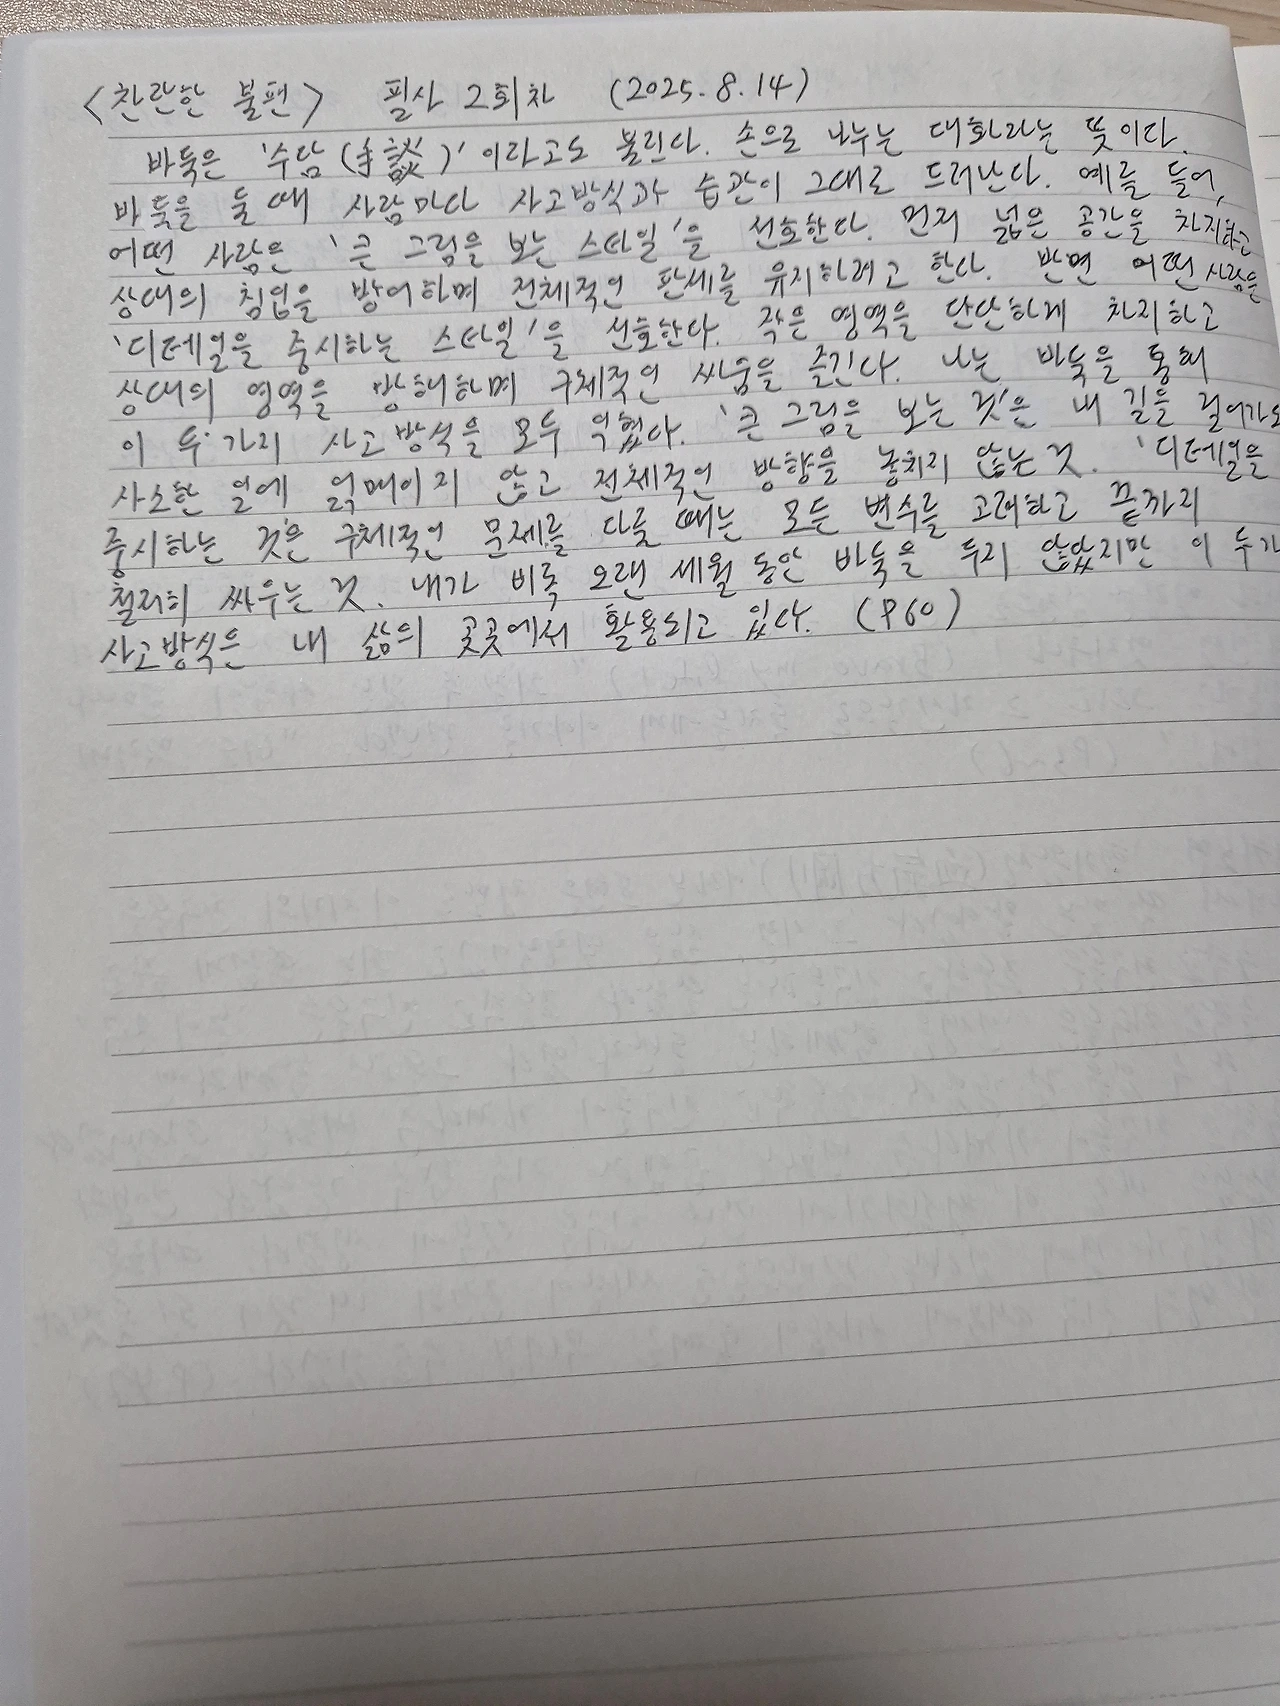 <찬란한 불편> 필사 2회차 (2025. 8. 14)
바둑은 '수담(手談)'이라고도 불린다. 손으로 나누는 대화라는 뜻이다.
바둑을 둘 때 사람마다 사고방식과 습관이 그대로 드러난다. 예를 들어,
어떤 사람은 '큰 그림을 보는 스타일'을 선호한다. 먼저 넓은 공간을 차지하고
상대의 침입을 방어하며 전체적인 판세를 유지하려고 한다. 반면 어떤 사람들은
'디테일을 중시하는 스타일'을 선호한다. 작은 영역을 단단하게 차지하고
상대의 영역을 방해하며 구체적인 싸움을 즐긴다. 나는 바둑을 통해
이 두 가지 사고방식을 모두 익혔다. '큰 그림을 보는 것'은 내 길을 걸어가도
사소한 일에 얽매이지 않고 전체적인 방향을 놓치지 않는 것. '디테일을
중시하는 것'은 구체적인 문제를 다룰 때는 모든 변수를 고려하고 끝까지
철저히 싸우는 것. 내가 비록 오랜 세월 동안 바둑을 두지 않았지만 이 두가
사고방식은 내 삶의 곳곳에서 활용되고 있다. (P60)